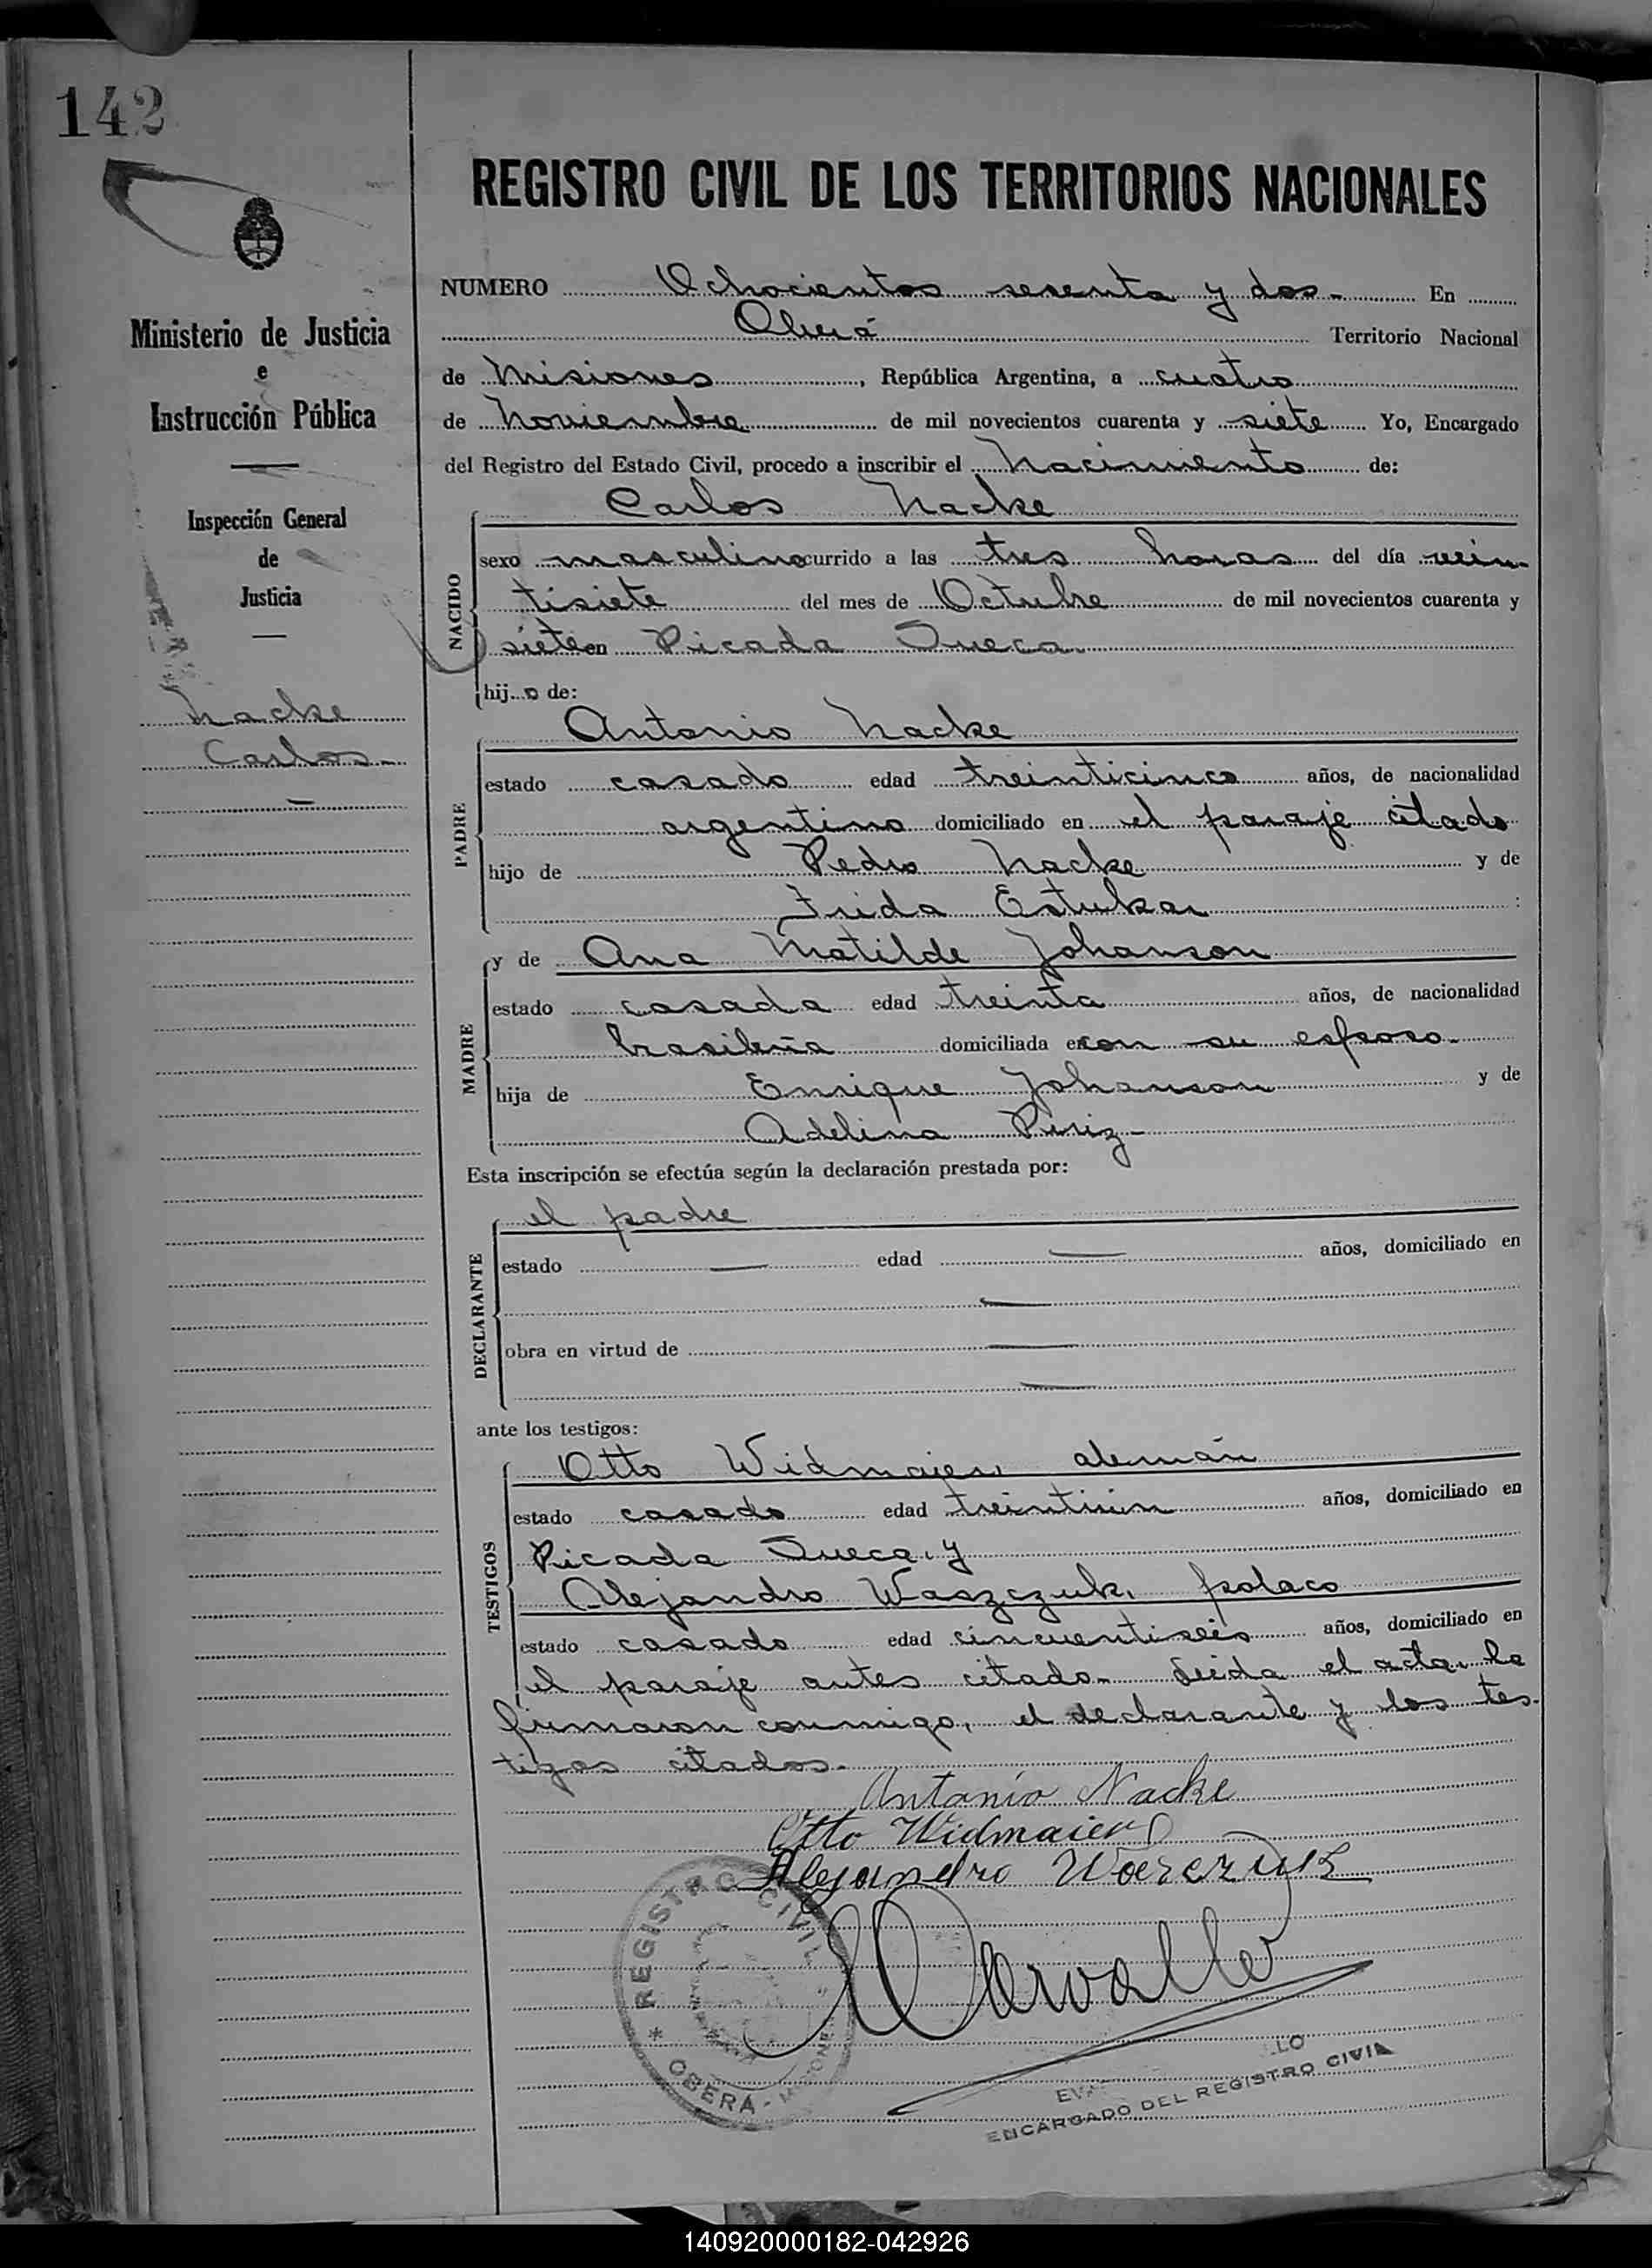 142
REGISTRO CIVIL DE LOS TERRITORIOS NACIONALES
Ministerio de Justicia
e
Instrucción Pública
Inspección General
de
Justicia
Nacke
Carlos
NUMERO Ochocientos sesenta y dos - En
Oberá Territorio Nacional
de Misiones, República Argentina, a cuatro
de Noviembre de mil novecientos cuarenta y siete Yo, Encargado
del Registro del Estado Civil, procedo a inscribir el Nacimiento de:
Carlos Nacke
NACIDO
sexo masculino ocurrido a las tres horas del día vein-
tisiete del mes de Octubre de mil novecientos cuarenta y
siete en Picada Sueca
hijo de:
PADRE
Antonio Nacke
estado casado edad treinticinco años, de nacionalidad
argentino domiciliado en el paraje citado
hijo de Pedro Nacke y de
Frida Estuker
MADRE
y de Ana Matilde Johanson
estado casada edad treinta años, de nacionalidad
brasileña domiciliada en con su esposo -
hija de Enrique Johanson y de
Adelina Piriz -
Esta inscripción se efectúa según la declaración prestada por:
DECLARANTE
el padre
estado — edad — años, domiciliado en
obra en virtud de
ante los testigos:
TESTIGOS
Otto Widmaier, alemán
estado casado edad treintiún años, domiciliado en
Picada Sueca, y
Alejandro Waszczuk, polaco
estado casado edad cincuentiseis años, domiciliado en
el paraje antes citado - Leida el acta, la
firmaron conmigo, el declarante y los tes-
tigos citados. -
Antonio Nacke
Otto Widmaier
Alejandro Waszczuk
Carvallo
REGISTRO CIVIL
* OBERÁ - MISIONES
ENCARGADO DEL REGISTRO CIVIL
140920000182-042926